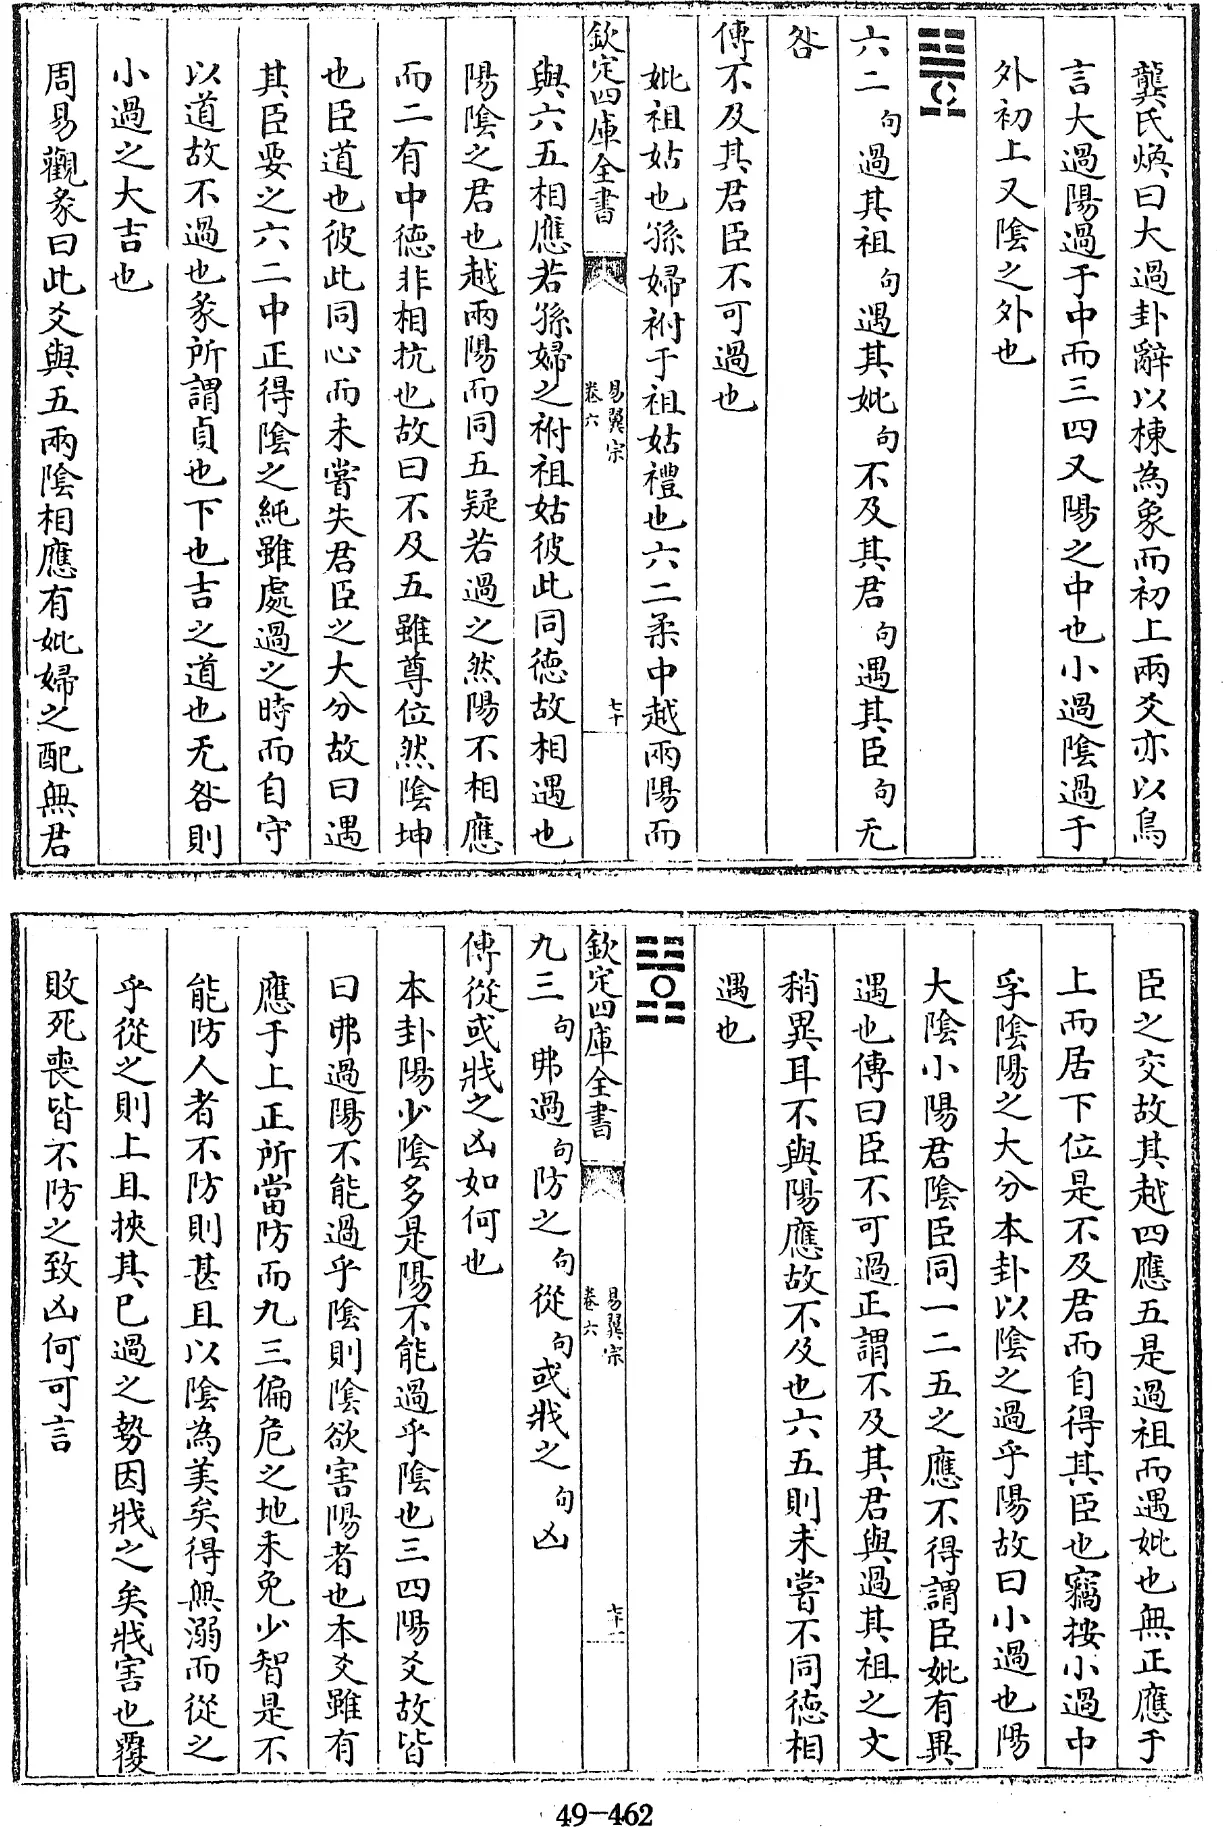 龔氏煥曰大過卦辭以棟為象而初上兩爻亦以鳥
言大過陽過于中而三四又陽之中也小過陰過于
外初上又陰之外也
六二句過其祖句遇其妣句不及其君句遇其臣句无
咎
傳不及其君臣不可過也
妣祖姑也孫婦祔于祖姑禮也六二柔中越兩陽而
欽定四庫全書
易翼宗
卷六
七十
與六五相應若孫婦之祔祖姑彼此同德故相遇也
陽陰之君也越兩陽而同五疑若過之然陽不相應
而二有中德非相抗也故曰不及五雖尊位然陰坤
也臣道也彼此同心而未嘗失君臣之大分故曰遇
其臣要之六二中正得陰之純雖處過之時而自守
以道故不過也彖所謂貞也下也吉之道也无咎則
小過之大吉也
周易觀彖曰此爻與五兩陰相應有妣婦之配無君
臣之交故其越四應五是過祖而遇妣也無正應于
上而居下位是不及君而自得其臣也竊按小過中
孚陰陽之大分本卦以陰之過乎陽故曰小過也陽
大陰小陽君陰臣同一二五之應不得謂臣妣有異
遇也傳曰臣不可過正謂不及其君與過其祖之文
稍異耳不與陽應故不及也六五則未嘗不同德相
遇也
欽定四庫全書
易翼宗
卷六
七十一
九三句弗過句防之句從句或戕之句凶
傳從或戕之凶如何也
本卦陽少陰多是陽不能過乎陰也三四陽爻故皆
曰弗過陽不能過乎陰則陰欲害陽者也本爻雖有
應于上正所當防而九三偏危之地未免少智是不
能防人者不防則甚且以陰為美矣得無溺而從之
乎從之則上且挾其已過之勢因戕之矣戕害也覆
敗死喪皆不防之致凶何可言
49-462